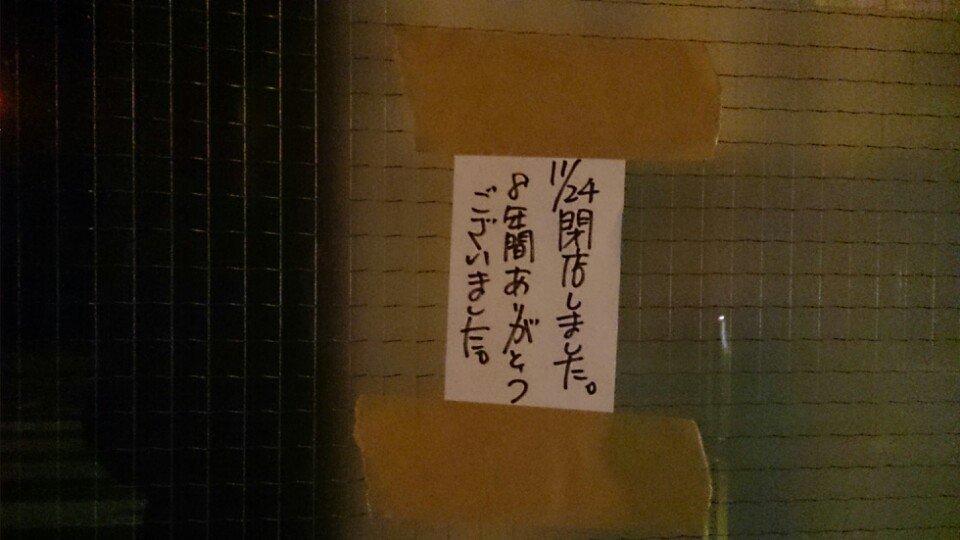 11/24閉店しました。
8年間ありがとう
ございました。